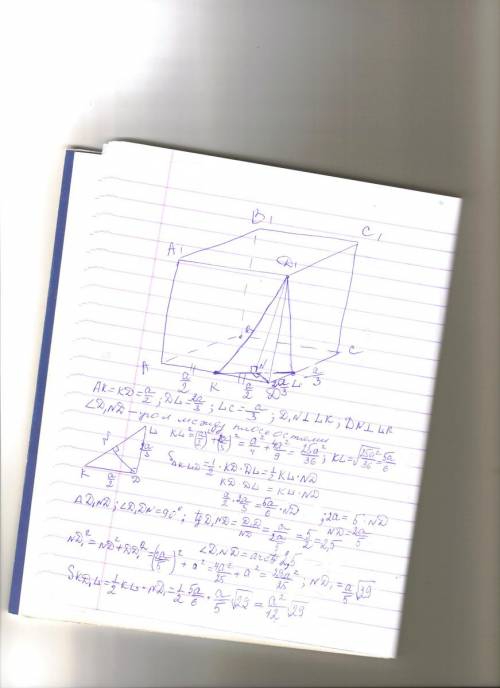 B₁
C₁
A₁
D₁
B
N
A
a/2
K
a/2
D
2a/3
L
a/3
C
AK=KD=a/2; DL=2a/3; LC=a/3; D₁N⊥LK; DN⊥LK
∠D₁ND – угол между плоскостями
KL²=(a/2)²+(2a/3)²=a²/4+4a²/9=25a²/36; KL=√25a²/36=5a/6
L
N
2a/3
K
a/2
D
S_KLD=1/2·KD·DL=1/2KL·ND
KD·DL=KL·ND
a/2·2a/3=5a/6·ND
; 2a=5·ND
ND=2a/5
△D₁ND; ∠D₁DN=90°; tg D₁ND=DD₁/ND=a/(2a/5)=5/2=2,5
∠D₁ND=arctg 2,5
ND₁²=ND²+DD₁²=(2a/5)²+a²=4a²/25+a²=29a²/25; ND₁=a/5√29
S_KD₁L=1/2KL·ND₁=1/2·5a/6·a/5√29=a²/12√29